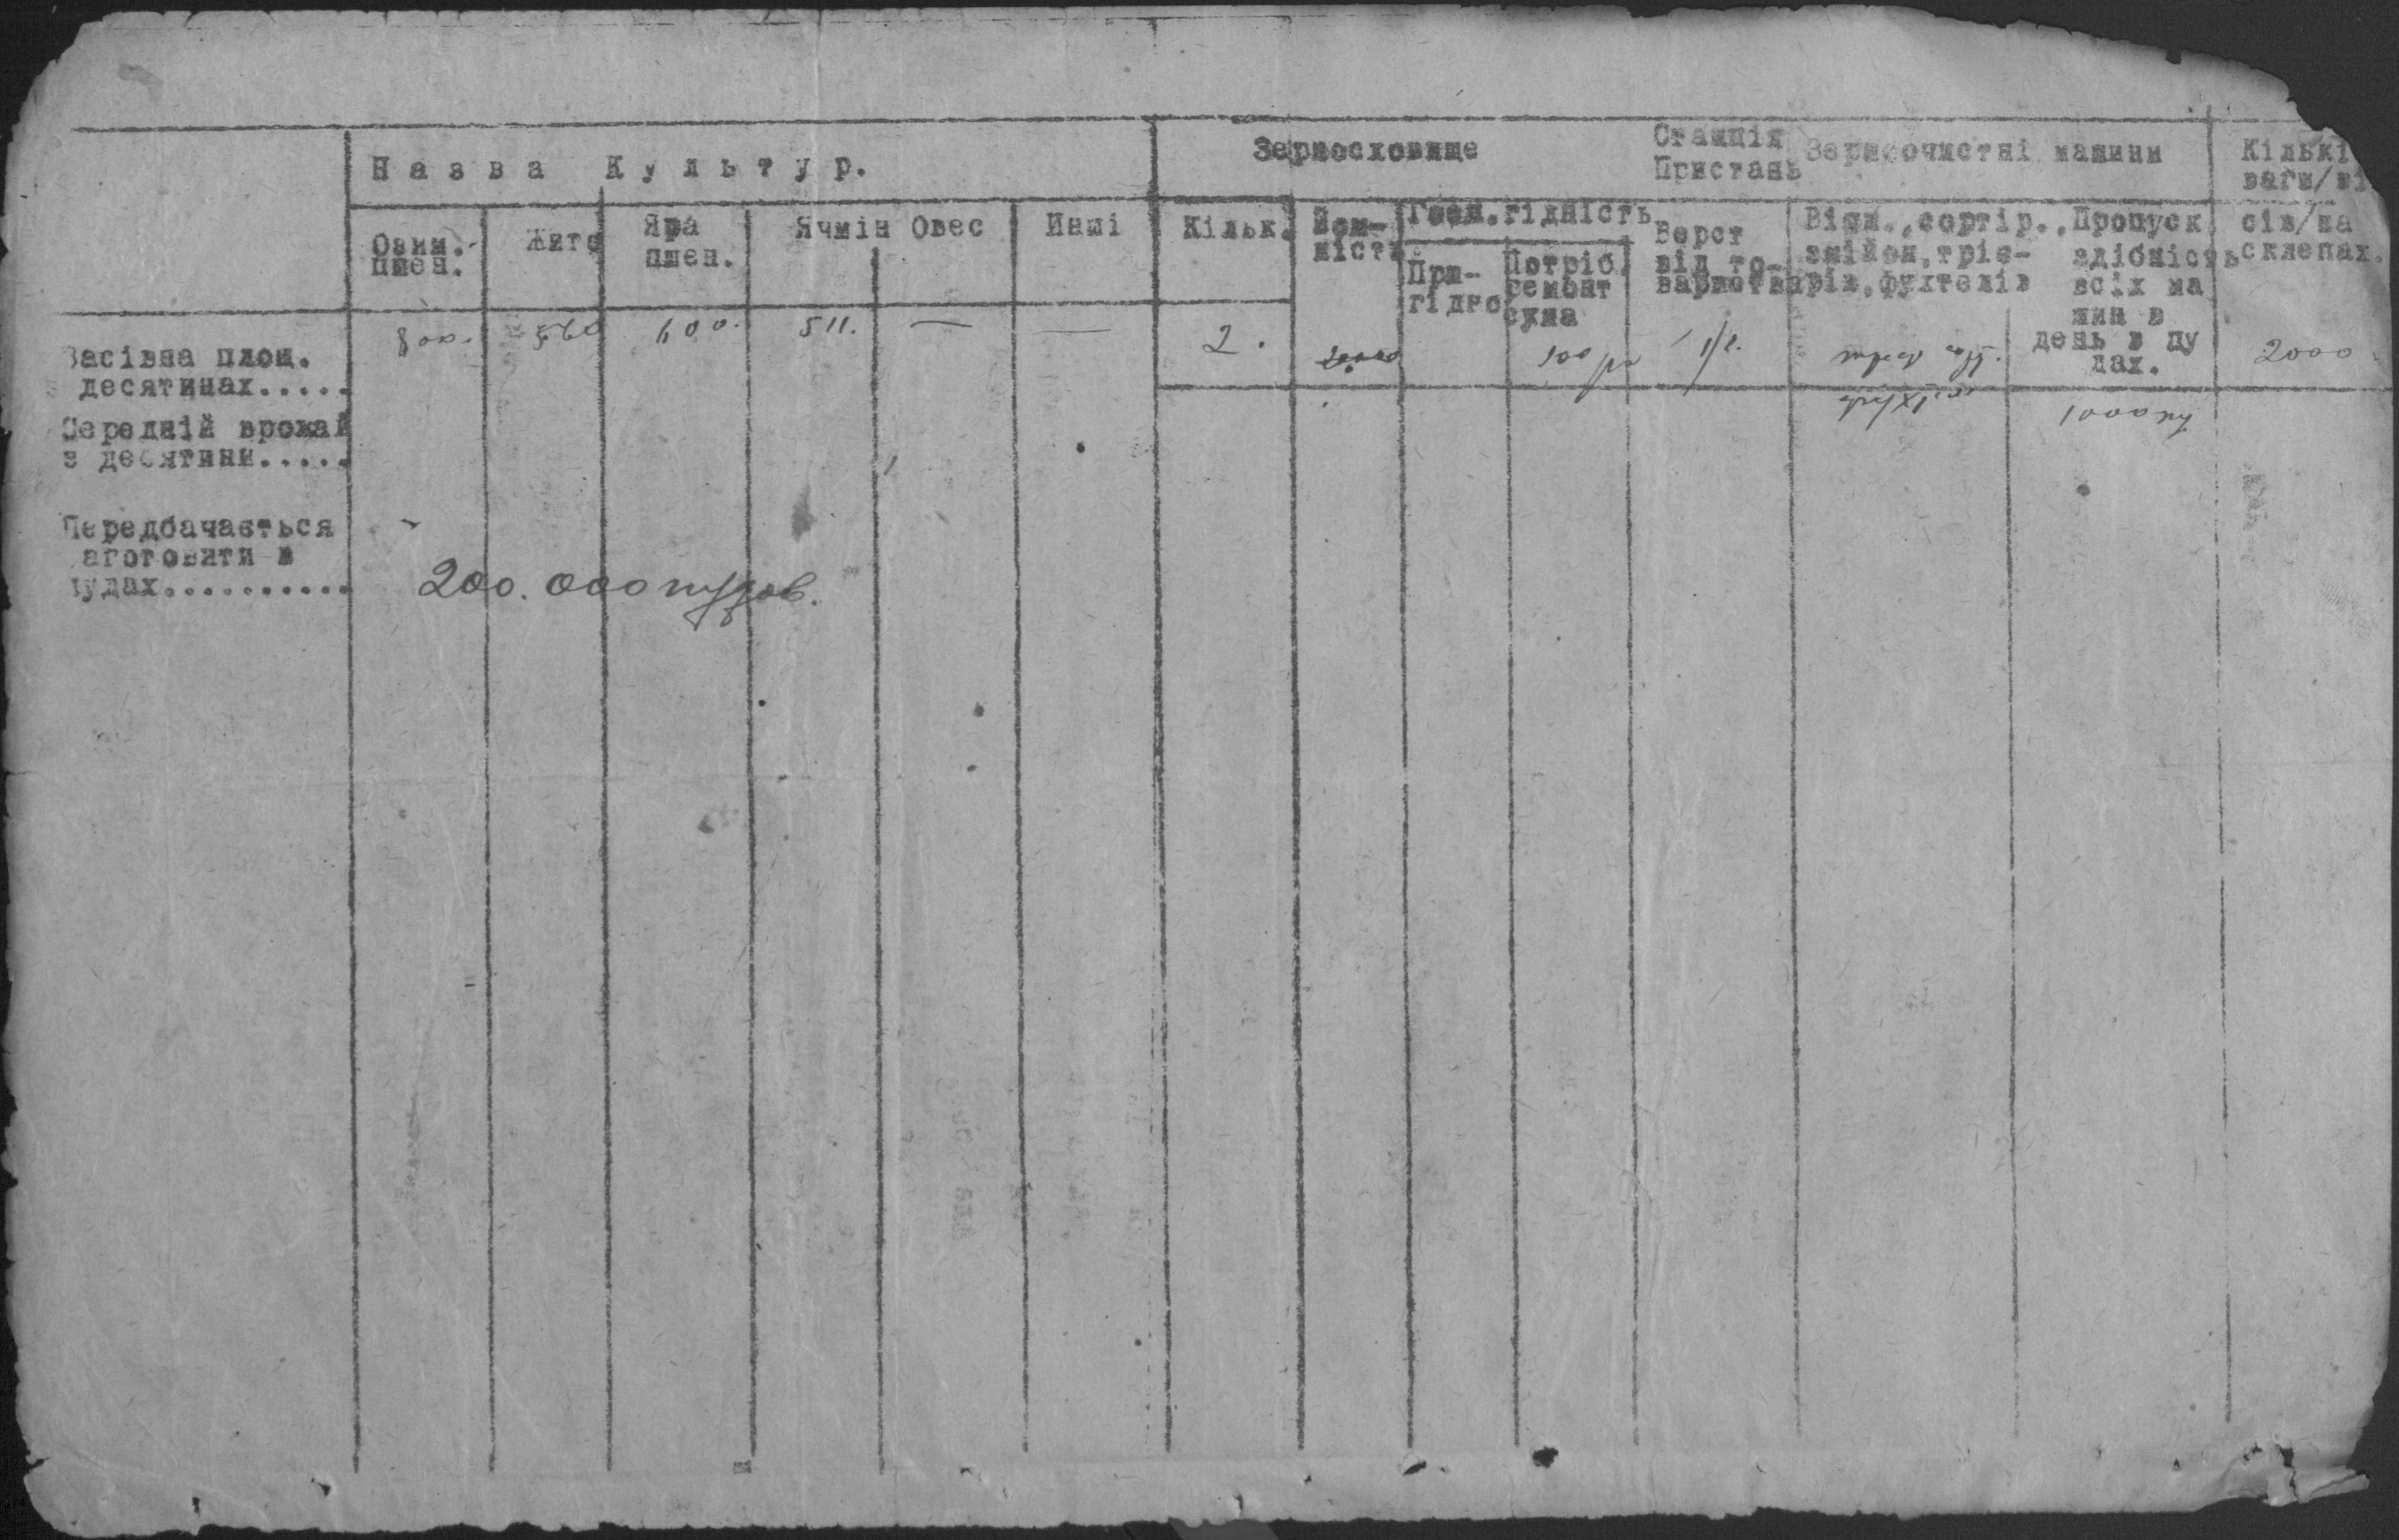 Назва Культур.
Зерносховище
Станція
Пристань
Зерноочистні машини
Кількі
ваги/ві
Озим.
пшен.
Жито
Яра
пшен.
Ячмін
Овес
Инші
Кільк.
Йом-
ність
Техн. гідність
При-
гідно
Потріб.
ремонт
сума
Верст
від то-
вариства
Віял., сортір.,
змійок, тріє-
рів, фухтелів
Пропуск
здібність
всіх ма
шин в
день в пу
дах.
сів/на
склепах.
Засівна площ.
десятинах.....
800.
560
600.
511.
—
—
2.
20000
100 р
1/2.
2000
Середній врожай
з десятини.....
1000 пу
Передбачається
аготовити в
пудах..........
200.000 пудов.